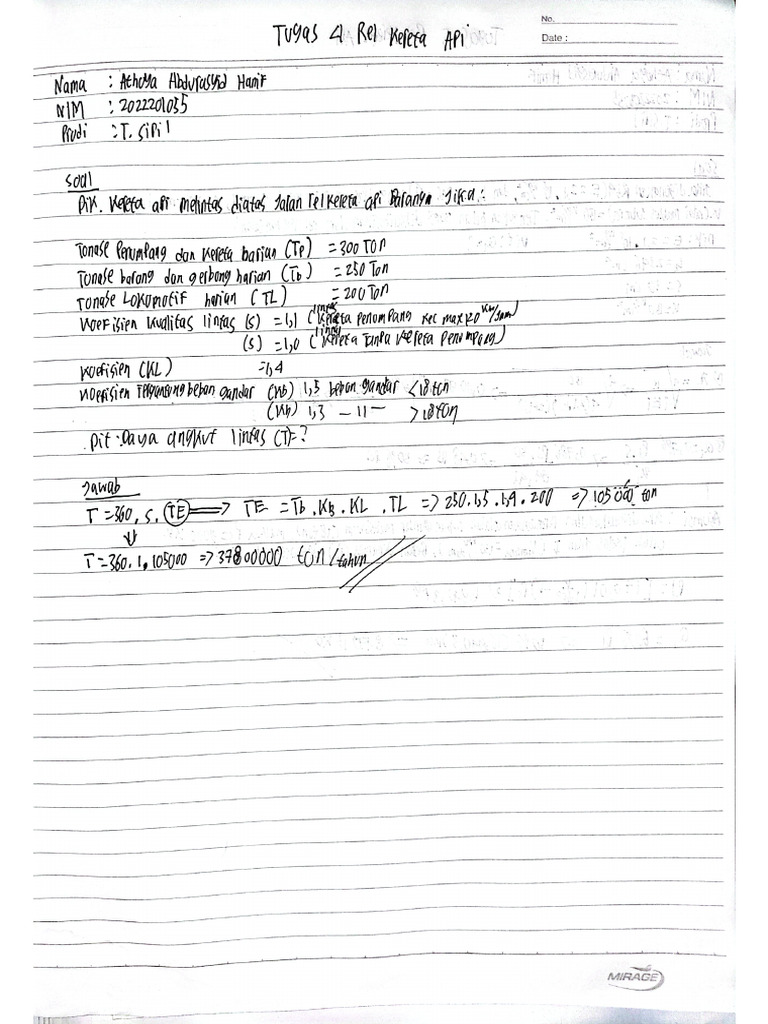 Tugas 4 Rel Kereta Api
No.
Date :
Nama :
Abdurasyid Hanif
NIM : 2022201035
Prodi : T. Sipil
Soal
Dik. Kereta api melintas diatas Jalan rel kereta api Barang Jika :
Tonase Penumpang dan kereta harian (Tp) = 300 Ton
Tonase barang dan gerbong harian (Tb) = 250 Ton
Tonase Lokomotif harian (TL) = 200 Ton
Koefisien kualitas lintas (s) = 1,1 (lintas kereta penumpang kec max 120 Km/Jam)
(s) = 1,0 (lintas kereta Tanpa kereta penumpang)
Koefisien (KL) = 1,4
Koefisien Tergantung beban gandar (Kb) 1,5 beban gandar < 18 ton
(Kb) 1,3 — 11 — > 18 ton
Dit : Daya angkut lintas (T) = ?
Jawab
T = 360 . S . TE => TE = Tb . KB . KL . TL => 250 . 1,5 . 1,4 . 200 => 105000 ton
T = 360 . 1 . 105000 => 37800000 ton/tahun
MIRAGE